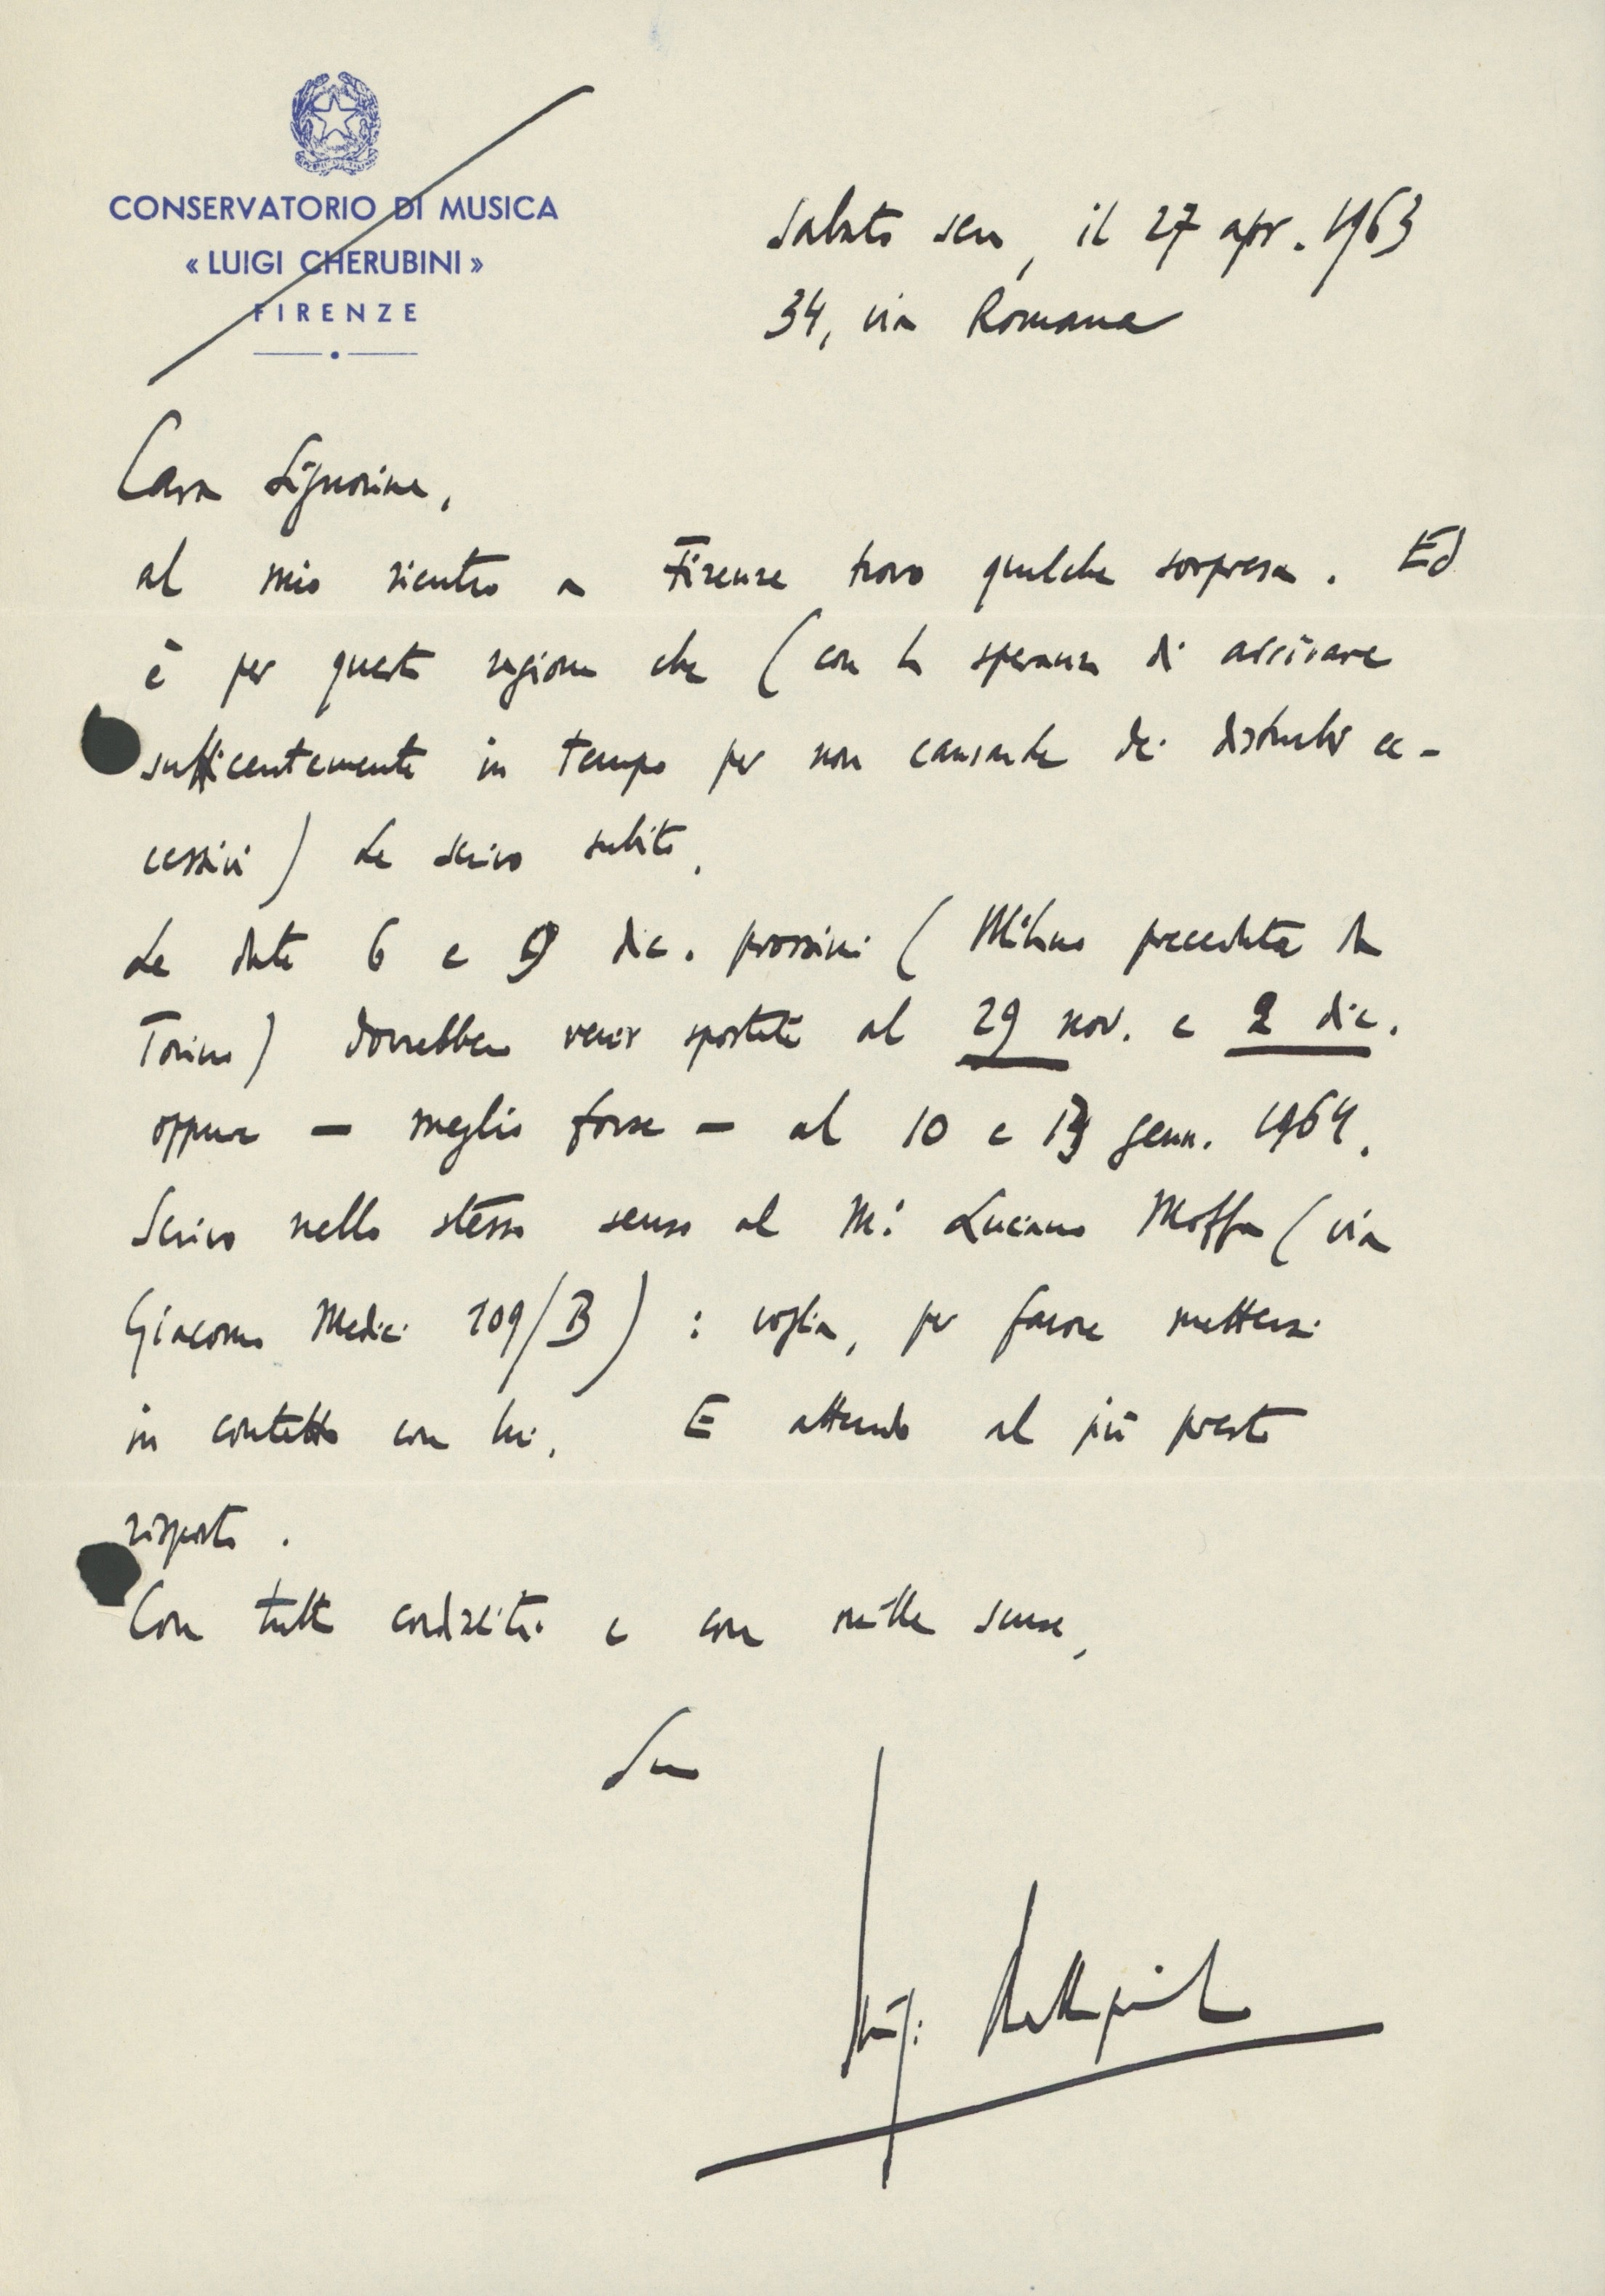 CONSERVATORIO DI MUSICA
« LUIGI CHERUBINI »
FIRENZE
Sabato sera, il 27 apr. 1963
34, via Romana
Cara Signorina,
al mio rientro a Firenze trovo qualche sorpresa. Ed
è per questa ragione che (con la speranza di arrivare
sufficentemente in tempo per non causarLe dei disturbi ec-
cessivi) Le scrivo subito.
Le date 6 e 9 dic. prossimi (Milano preceduta da
Torino) dovrebbero venir spostate al 29 nov. e 2 dic.
oppure — meglio forse — al 10 e 13 genn. 1964.
Scrivo nello stesso senso al M.o Luciano Moffa (via
Giacomo Medici 109/B) : voglia, per favore mettersi
in contatto con lui. E attendo al più presto
risposta.
Con tutta cordialità e con mille scuse,
Suo
Luigi Dallapiccola